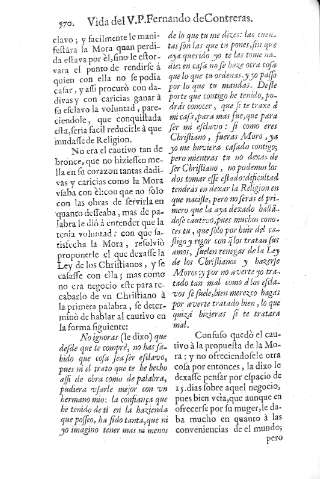 370. Vida del V.P. Fernando de Contreras.
clavo; y facilmente le mani-
festára la Mora quan perdi-
da estava por èl, sino le estor-
vara el punto de rendirse à
quien con ella no se podia
casar, y assi procurò con da-
divas y con caricias ganar à
su esclavo la voluntad, pare-
ciendole, que conquistada
esta, seria facil reducirle à que
mudasse de Religion.
No era el cautivo tan de
bronce, que no hiziessen me-
lla en su corazon tantas dadi-
vas y caricias como la Mora
usaba con èl: con que no solo
con las obras de servirla en
quanto desseaba, mas de pa-
labra le diò à entender que la
tenia voluntad; con que sa-
tisfecha la Mora, resolviò
proponerle el que dexasse la
Ley de los Christianos, y se
casasse con ella; mas como
no era negocio este para re-
cabarlo de un Christiano à
la primera palabra, se deter-
minò de hablar al cautivo en
la forma siguiente:
No ignoras (le dixo) que
desde que te comprè, no has sa-
bido que cosa sea ser esclavo,
pues ni al trato que te he hecho
assi de obra como de palabra,
pudiera usarle mejor con un
hermano mio: la confiança que
he tenido de ti en la hazienda
que posseo, ha sido tanta, que ni
yo imagino tener mas ni menos
de lo que tu me dizes: las cuen-
tas son las que tu pones, sin que
aya querido yo te las tome na-
die: en casa no se haze otra cosa
que lo que tu ordenas, y yo passo
por lo que tu mandas. Desde
porte que contigo he tenido, po-
dràs conocer, que si te traxe à
mi casa, para mas fue, que para
ser mi esclavo: si como eres
Christiano, fueras Moro, ya
yo me huviera casado contigo;
pero mientras tu no dexas de
ser Christiano, no podemos los
dos tomar esse estado: dificultad
tendras en dexar la Religion en
que naciste, pero no seras el pri-
mero que la aya dexado hallan-
dose cautivo, pues muchos con-
tes tu, que solo por huir del cas-
tigo y rigor con que los tratan sus
amos, suelen renegar de la Ley
de los Christianos y hazerse
Moros: y por no averte yo tra-
tado tan mal como à los escla-
vos se suele, bien merezco hagas
por averte tratado bien, lo que
quizà hizieras si te tratara
mal.
Confuso quedò el cau-
tivo à la propuesta de la Mo-
ra; y no ofreciendole otra
cosa por entonces, la dixo le
dexasse pensar por espacio de
15. dias sobre aquel negocio,
pues bien veia, que aunque en
ofrecerse por su muger, le da-
ba mucho en quanto à las
conveniencias de el mundo;
pero